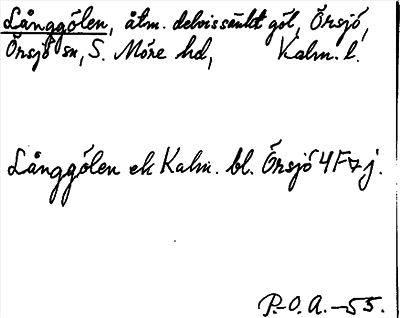 Långgölen, åtm. delvis sänkt göl, Örsjö,
Örsjö sn, S. Möre hd, Kalm. l.
Långgölen ek Kalm. bl. Örsjö 4F7j.
P.-O.A.-55.